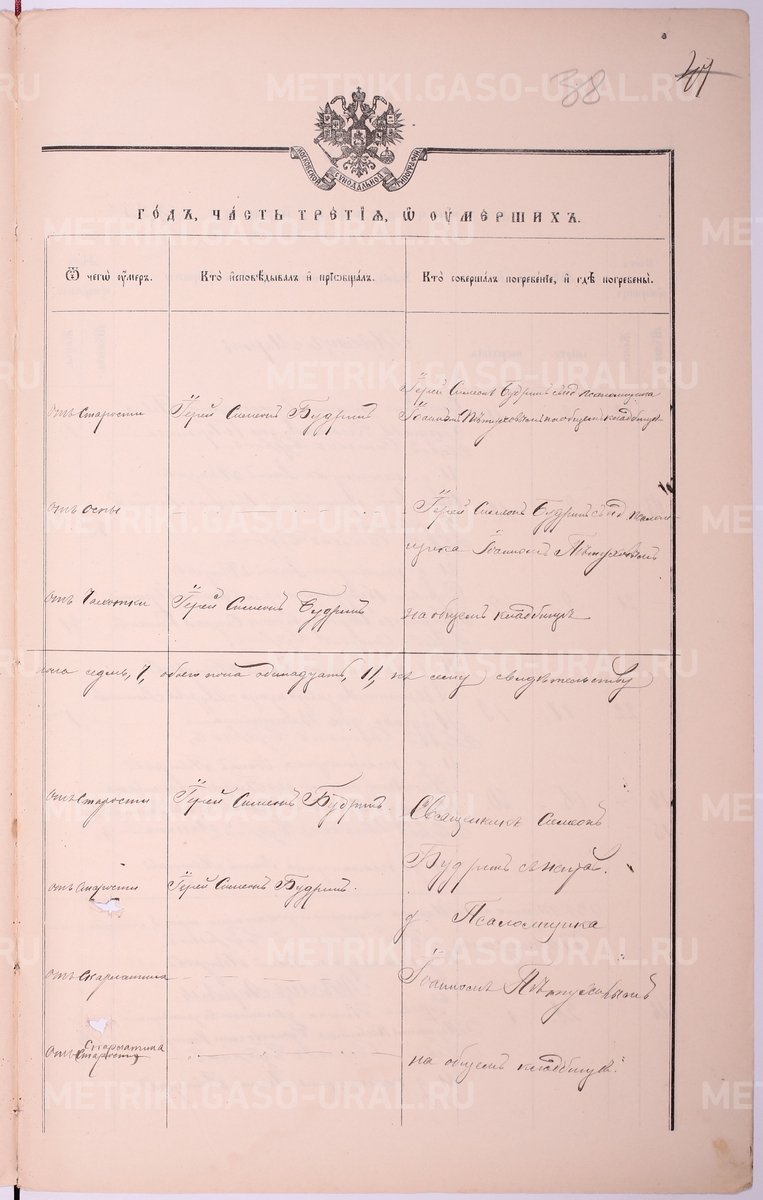 38
41
МОСКОВСКОЙ СѴНОДАЛЬНОЙ ТИПОГРАФІИ
ГОДЪ, ЧАСТЬ ТРЕТІЯ, Ѿ ОУМЕРШИХЪ.
Ѿ чегѡ оумеръ.
Кто исповѣдывалъ и пріобщалъ.
Кто совершалъ погребеніе, и гдѣ погребены.
отъ старости
Іерей Симеонъ Будринъ
Іерей Симеонъ Будринъ съ и.д. псаломщика
Іоанномъ Пѣтуховымъ на общемъ кладбищѣ
отъ оспы
Іерей Симеонъ Будринъ съ и.д. псалом-
щика Іоанномъ Пѣтуховымъ
отъ чахотки
Іерей Симеонъ Будринъ
на общемъ кладбищѣ
пола седмь, 7, обоего пола одинадцать, 11, къ сему свидѣтельству
отъ старости
Іерей Симеонъ Будринъ
Священникъ Симеонъ
Будринъ съ
отъ старости
Іерей Симеонъ Будринъ.
д. Псаломщика
отъ скарлатина
Іоанномъ Пѣтуховымъ
отъ старости
скарлатина
на общемъ кладбищѣ.
METRIKI.GASO-URAL.RU